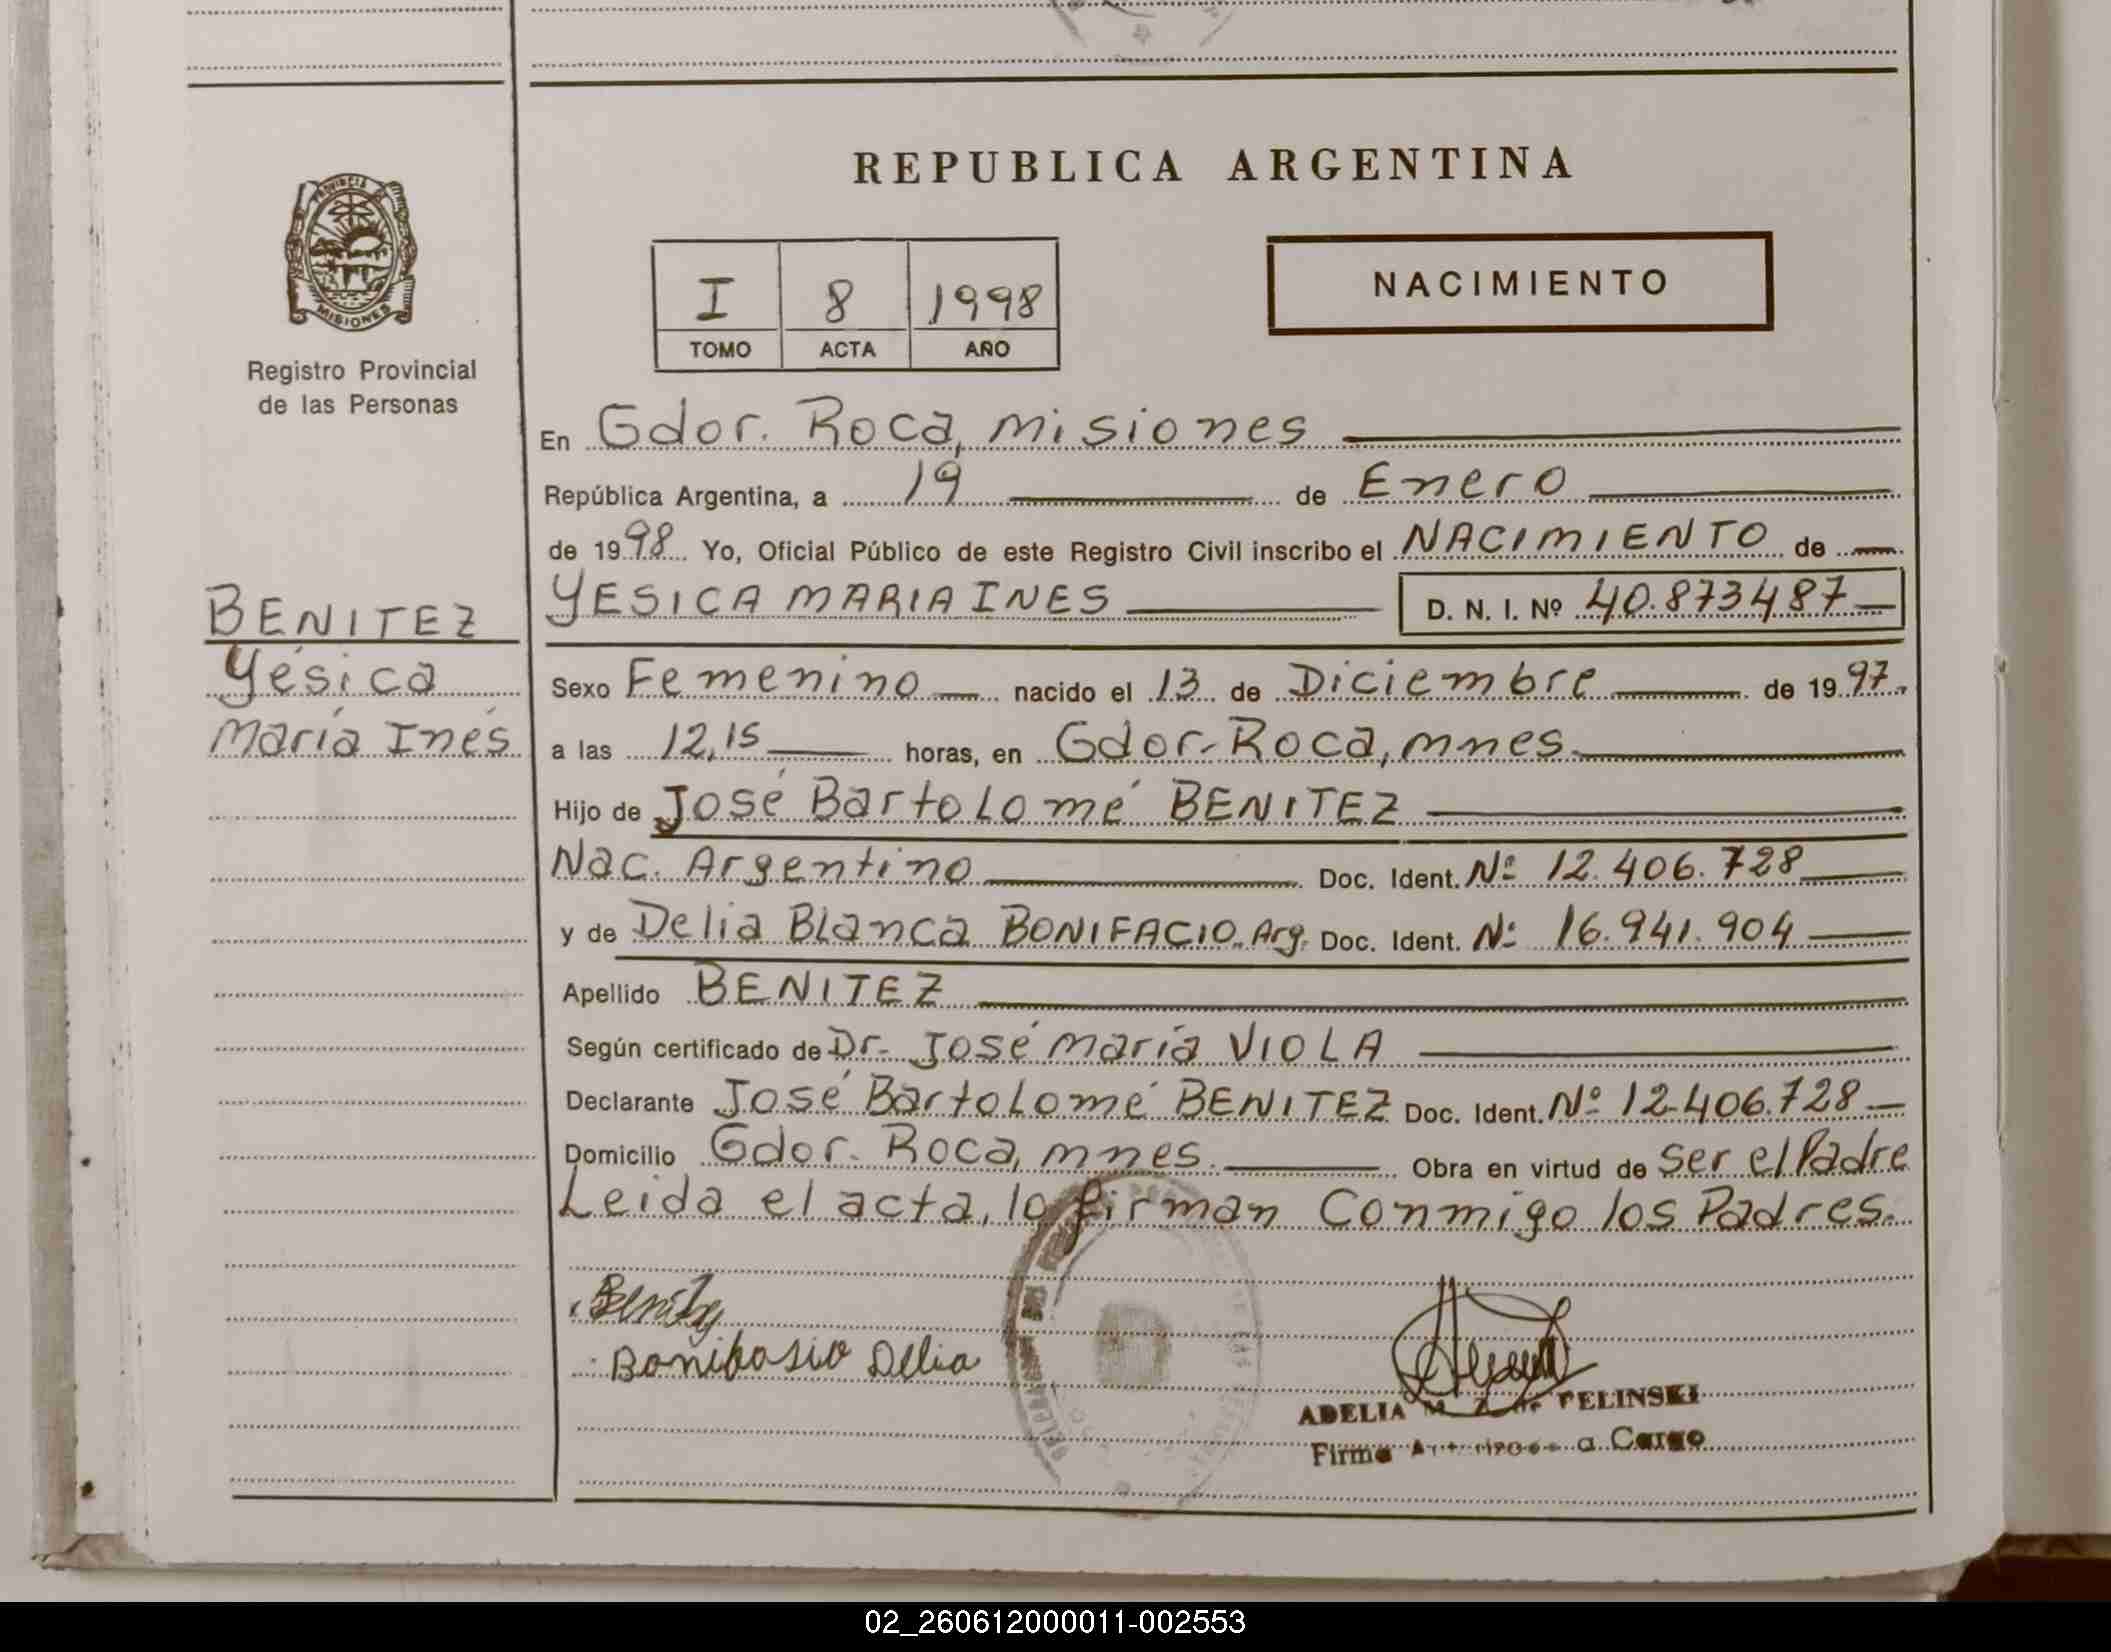 PROVINCIA DE
MISIONES
Registro Provincial
de las Personas
BENITEZ
Yésica
María Inés
REPUBLICA ARGENTINA
I 8 1998
TOMO ACTA AÑO
NACIMIENTO
En Gdor. Roca, Misiones
República Argentina, a 19 de Enero
de 1998 Yo, Oficial Público de este Registro Civil inscribo el NACIMIENTO de
YESICA MARIA INES D. N. I. Nº 40.873487
Sexo Femenino nacido el 13 de Diciembre de 1997
a las 12,15 horas, en Gdor. Roca, mnes.
Hijo de José Bartolomé BENITEZ
Nac. Argentino Doc. Ident. Nº 12.406.728
y de Delia Blanca BONIFACIO Arg. Doc. Ident. Nº 16.941.904
Apellido BENITEZ
Según certificado de Dr. José María VIOLA
Declarante José Bartolomé BENITEZ Doc. Ident. Nº 12.406.728
Domicilio Gdor. Roca, mnes. Obra en virtud de ser el Padre
Leida el acta, lo firman Conmigo los Padres.
Benitez
Bonifasio Delia
ADELIA M. Z. de PELINSKI
Firma Autorizada a Cargo
02_260612000011-002553